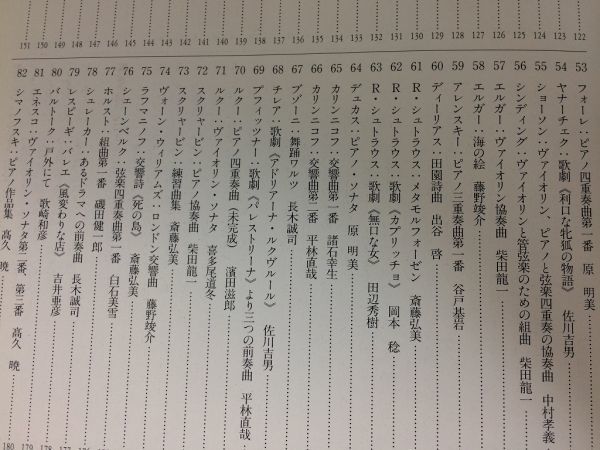 122
123
124
125
126
127
128
129
130
131
132
133
134
135
136
137
138
139
140
141
142
143
144
145
146
147
148
149
150
151
53 フォーレ:ピアノ四重奏曲第一番 原 明美
54 ヤナーチェク:歌劇《利口な牝狐の物語》 佐川吉男
55 ショーソン:ヴァイオリン、ピアノと弦楽四重奏の協奏曲 中村孝義
56 シンディング:ヴァイオリンと管弦楽のための組曲 柴田龍一
57 エルガー:ヴァイオリン協奏曲 柴田龍一
58 エルガー:海の絵 藤野竣介
59 アレンスキー:ピアノ三重奏曲第一番 谷戸基岩
60 ディーリアス:田園詩曲 出谷 啓
61 R・シュトラウス:メタモルフォーゼン 斎藤弘美
62 R・シュトラウス:歌劇《カプリッチョ》 岡本 稔
63 R・シュトラウス:歌劇《無口な女》 田辺秀樹
64 デュカス:ピアノ・ソナタ 原 明美
65 カリンニコフ:交響曲第一番 諸石幸生
66 カリンニコフ:交響曲第二番 平林直哉
67 ブゾーニ:舞踊ワルツ 長木誠司
68 チレア:歌劇《アドリアーナ・ルクヴルール》 佐川吉男
69 プフィッツナー:歌劇《パレストリーナ》より三つの前奏曲 平林直哉
70 ルクー:ピアノ四重奏曲(未完成) 濱田滋郎
71 ルクー:ヴァイオリン・ソナタ 喜多尾道冬
72 スクリャービン:ピアノ協奏曲 柴田龍一
73 スクリャービン:練習曲集 斎藤弘美
74 ヴォーン・ウィリアムズ:ロンドン交響曲 藤野竣介
75 ラフマニノフ:交響詩《死の島》 斎藤弘美
76 シェーンベルク:弦楽四重奏曲第一番 白石美雪
77 ホルスト:組曲第一番 磯田健一郎
78 シュレーカー:あるドラマへの前奏曲 長木誠司
79 レスピーギ:バレエ《風変わりな店》 吉井亜彦
80 バルトーク:戸外にて 歌崎和彦
81 エネスコ:ヴァイオリン・ソナタ第二番、第三番 高久 曉
82 シマノフスキ:ピアノ作品集 高久 曉
177
178
179
180